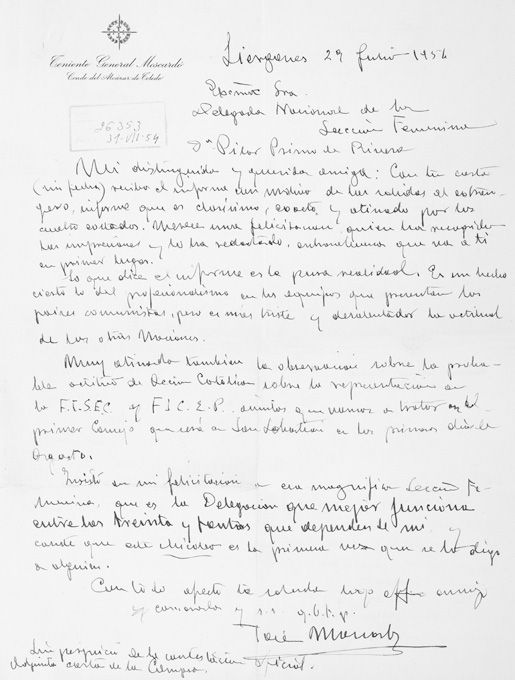 Teniente General Moscardó
Conde del Alcázar de Toledo
Liérganes 29 Julio 1954
26353
31-VII-54
Excma Sra.
Delegada Nacional de la
Sección Femenina
Dª Pilar Primo de Rivera
Mi distinguida y querida amiga: Con tu carta
(sin fecha) recibo el informe con motivo de las salidas al extran-
gero, informe que es clarísimo, exacto y atinado por los
cuatro costados. Merece una felicitación, quien ha recogido
las impresiones y lo ha redactado, enhorabuena que va a ti
en primer lugar.
Lo que dice el informe es la pura realidad. Es un hecho
cierto lo del profesionalismo en los equipos que presentan los
países comunistas, pero es más triste y desalentador la actitud
de las otras Naciones.
Muy atinada también la observación sobre la proba-
ble actitud de Acción Católica sobre la representación en
la F.I.S.E.C. y F.I.C.E.P. asuntos que vamos a tratar en el
primer Consejo que será en San Sebastián en los primeros días de
Agosto.
Insisto en mi felicitación a esa magnífica Sección Fe-
menina, que es la Delegación que mejor funciona
entre las treinta y tantas que dependen de mí y
conste que este chicoleo es la primera vez que se lo digo
a alguien.
Con todo afecto te saluda tu affmo amigo
y camarada y s.s. q.b.t.p.
José Moscardó
Sin perjuicio de la contestación oficial.
Adjunto carta de la